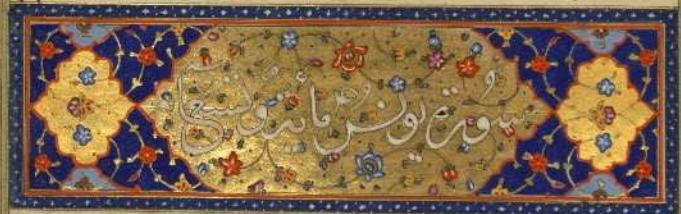 سورة يونس مائة وتسع